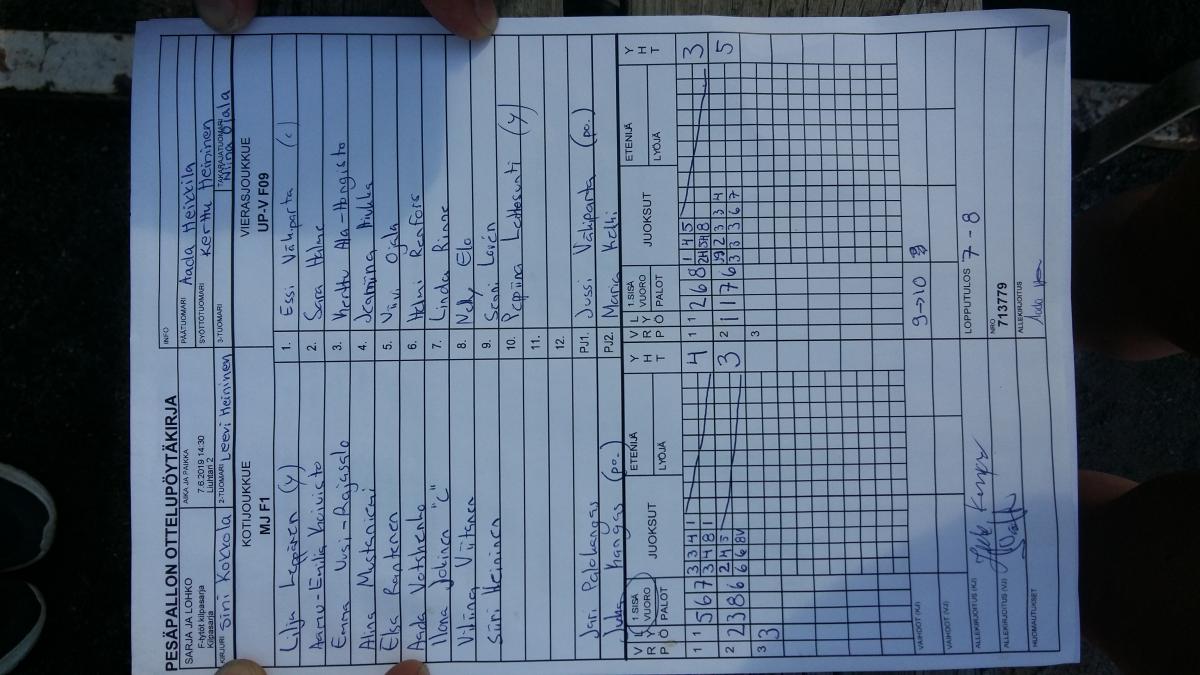 PESÄPALLON OTTELUPÖYTÄKIRJA
SARJA JA LOHKO
F-tytöt kilpasarja
Kilpasarja
AIKA JA PAIKKA
7.6.2019 14:30
Liuhtari 2
INFO
PÄÄTUOMARI Aada Heikkilä
SYÖTTÖTUOMARI Kerttu Heininen
KIRJURI Sini Kokkola
2-TUOMARI Leevi Heininen
3-TUOMARI
TAKARAJATUOMARI Niina Ojala
KOTIJOUKKUE
MJ F1
VIERASJOUKKUE
UP-V F09
Lilja Leppänen (y) 1. Essi Väkiparta (c)
Aamu-Emilia Koivisto 2. Sara Halme
Emma Uusi-Rajasalo 3. Kerttu Ala-Hongisto
Alina Mustaniemi 4.
Eka Rantanen 5. Viivi Ojala
Aada 6. Helmi Renfors
Ilona Jokinen "C" 7. Linda Rinne
Viitanen 8. Nelly Elo
Siiri Heininen 9.
10. Peppiina (y)
11.
12.
Jari Palokangas PJ1. Jussi Väkiparta (po.)
Juha kangas (po.) PJ2. Maria
V R P L Y Ö 1.SISÄ VUORO PALOT JUOKSUT ETENIJÄ LYÖJÄ Y H T
V R P L Y Ö 1.SISÄ VUORO PALOT JUOKSUT ETENIJÄ LYÖJÄ Y H T
1 1 5 6 7 3 3 4 1 4
3 4 8 1
1 1 2 6 8 1 4 5 3
2 2 3 8 6 2 4 5 3
6 6 8
2 1 1 7 6 2 3 3 4 5
3 3 3 6 7
3 3
3
VAIHDOT (KJ) 9→10
VAIHDOT (VJ)
ALLEKIRJOITUS (KJ)
LOPPUTULOS 7 - 8
ALLEKIRJOITUS (VJ)
NRO
713779
HUOMAUTUKSET
ALLEKIRJOITUS